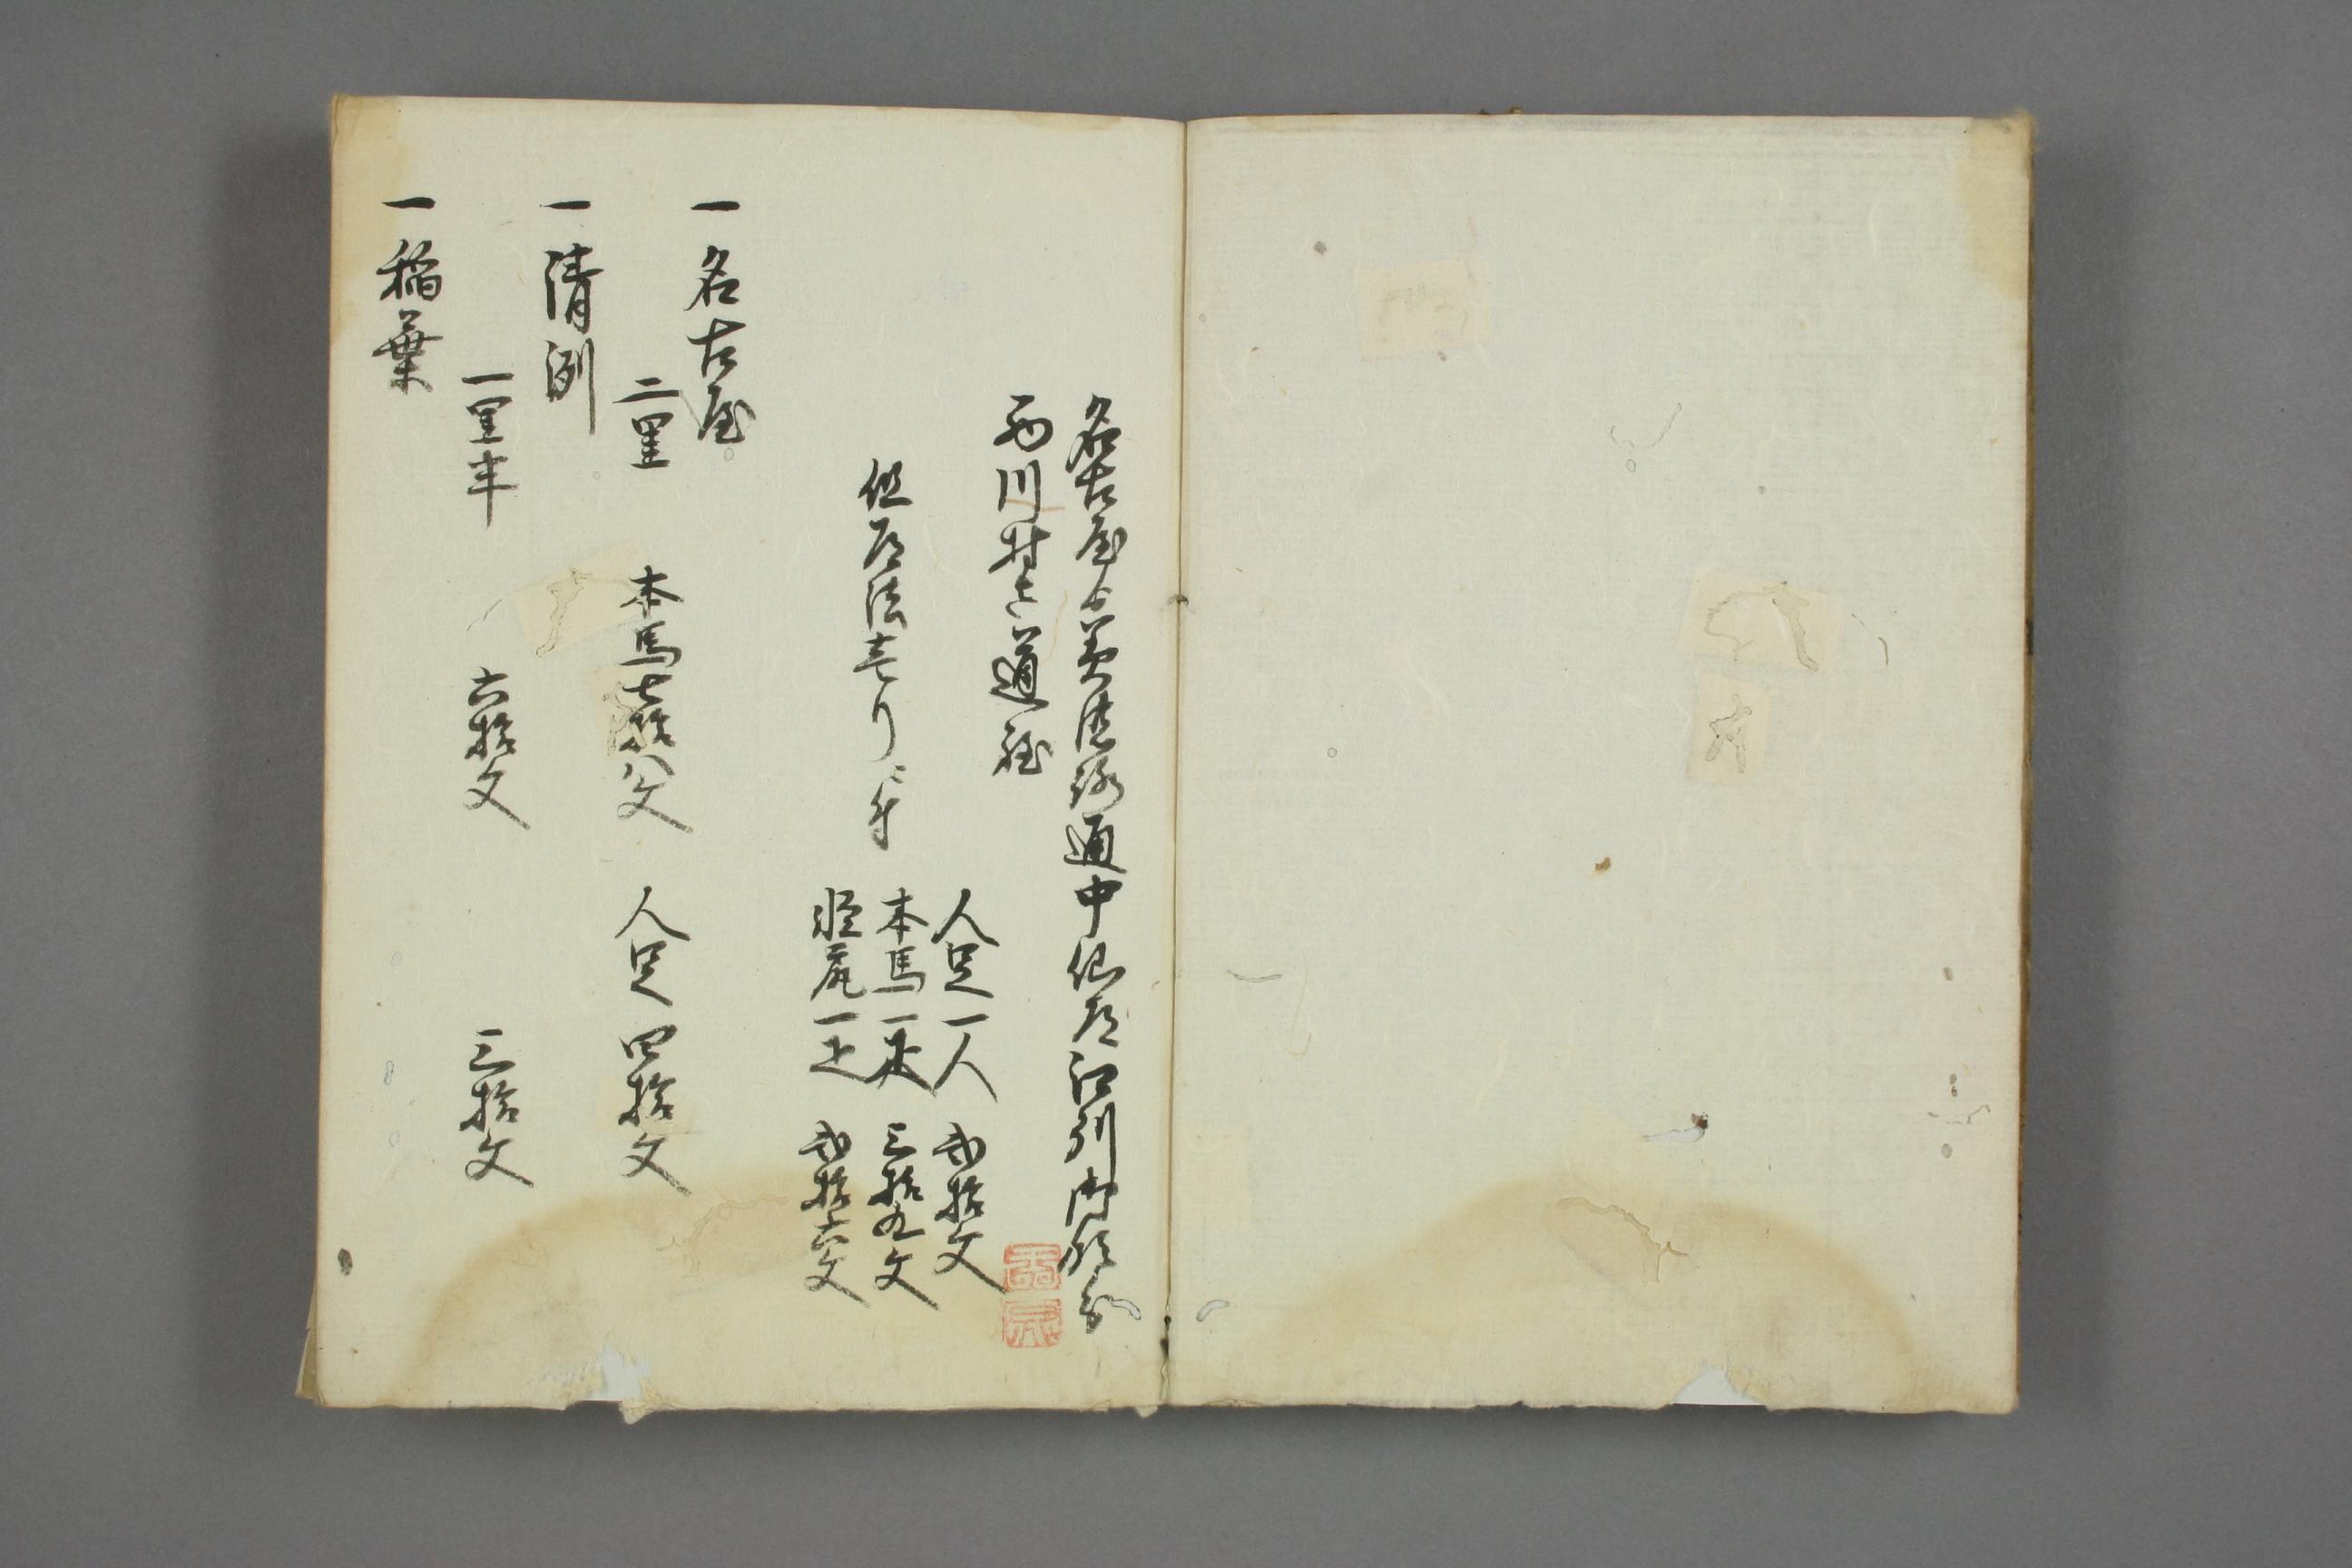 名古屋ゟ美濃路通中仙道江州御領分
西川村迄道程
但道法壱り ニ付
人足一人 弐拾文
本馬一疋 三拾九文
軽尻一疋 弐拾六文
一 名古屋
二里 本馬七拾八文 人足四拾文
一 清洲
一里半 六拾文 三拾文
一 稲葉